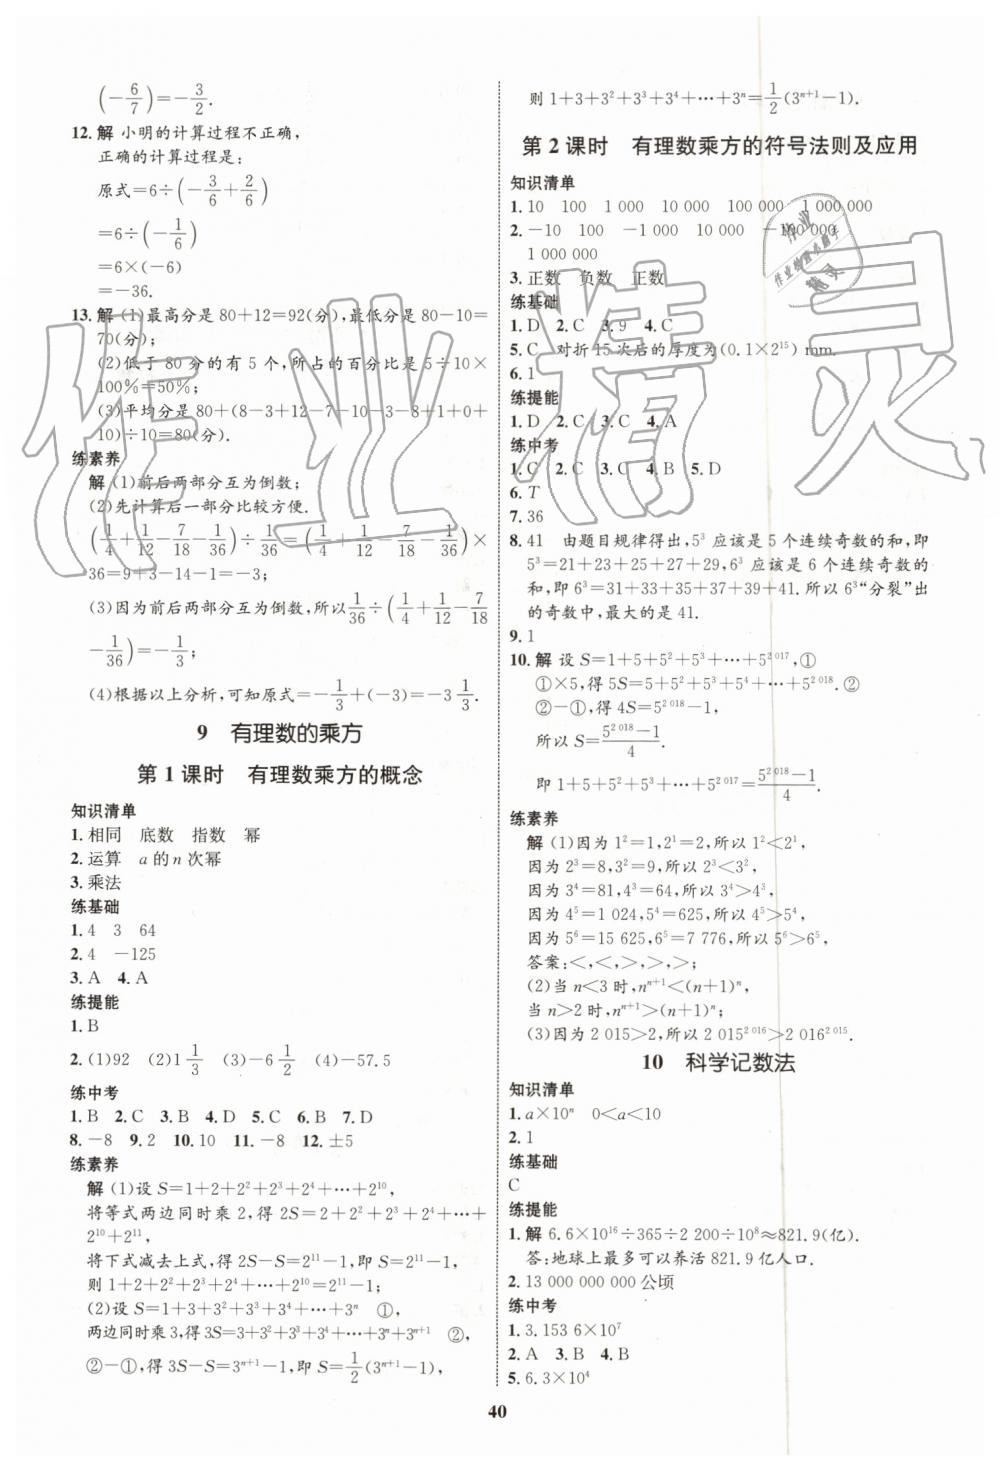 (-6/7)=-3/2.
12.解 小明的计算过程不正确,
正确的计算过程是:
原式=6÷(-3/6+2/6)
=6÷(-1/6)
=6×(-6)
=-36.
13.解 (1)最高分是 80+12=92(分),最低分是 80-10=
70(分);
(2)低于 80 分的有 5 个,所占的百分比是 5÷10×
100%=50%;
(3)平均分是 80+(8-3+12-7-10-3-8+1+0+
10)÷10=80(分).
练素养
解 (1)前后两部分互为倒数;
(2)先计算后一部分比较方便.
(1/4+1/12-7/18-1/36)÷1/36=(1/4+1/12-7/18-1/36)×
36=9+3-14-1=-3;
(3)因为前后两部分互为倒数,所以1/36÷(1/4+1/12-7/18
-1/36)=-1/3;
(4)根据以上分析,可知原式=-1/3+(-3)=-3 1/3.
9 有理数的乘方
第 1 课时 有理数乘方的概念
知识清单
1.相同 底数 指数 幂
2.运算 a 的 n 次幂
3.乘法
练基础
1.4 3 64
2.4 -125
3.A 4.A
练提能
1.B
2.(1)92 (2)1 1/3 (3)-6 1/2 (4)-57.5
练中考
1.B 2.C 3.B 4.D 5.C 6.C 7.D
8.-8 9.2 10.10 11.-8 12.±5
练素养
解 (1)设 S=1+2+2²+2³+2⁴+…+2¹⁰,
将等式两边同时乘 2,得 2S=2+2²+2³+2⁴+…+
2¹⁰+2¹¹,
将下式减去上式,得 2S-S=2¹¹-1,即 S=2¹¹-1,
则 1+2+2²+2³+2⁴+…+2¹⁰=2¹¹-1;
(2)设 S=1+3+3²+3³+3⁴+…+3ⁿ ①,
两边同时乘 3,得 3S=3+3²+3³+3⁴+…+3ⁿ+3ⁿ⁺¹ ②,
②-①,得 3S-S=3ⁿ⁺¹-1,即 S=1/2(3ⁿ⁺¹-1),
则 1+3+3²+3³+3⁴+…+3ⁿ=1/2(3ⁿ⁺¹-1).
第 2 课时 有理数乘方的符号法则及应用
知识清单
1.10 100 1 000 10 000 100 000 1 000 000
2.-10 100 -1 000 10 000 -100 000
1 000 000
3.正数 负数 正数
练基础
1.D 2.C 3.9 4.C
5.C 对折 15 次后的厚度为(0.1×2¹⁵) mm.
6.1
练提能
1.D 2.C 3.C 4.A
练中考
1.C 2.C 3.C 4.B 5.D
6.T
7.36
8.41 由题目规律得出,5³ 应该是 5 个连续奇数的和,即
5³=21+23+25+27+29,6³ 应该是 6 个连续奇数的
和,即 6³=31+33+35+37+39+41.所以 6³“分裂”出
的奇数中,最大的是 41.
9.1
10.解 设 S=1+5+5²+5³+…+5²⁰¹⁷,①
①×5,得 5S=5+5²+5³+5⁴+…+5²⁰¹⁸.②
②-①,得 4S=5²⁰¹⁸-1,
所以 S=(5²⁰¹⁸-1)/4.
即 1+5+5²+5³+…+5²⁰¹⁷=(5²⁰¹⁸-1)/4.
练素养
解 (1)因为 1²=1,2¹=2,所以 1²<2¹,
因为 2³=8,3²=9,所以 2³<3²,
因为 3⁴=81,4³=64,所以 3⁴>4³,
因为 4⁵=1 024,5⁴=625,所以 4⁵>5⁴,
因为 5⁶=15 625,6⁵=7 776,所以 5⁶>6⁵,
答案:<,<,>,>,>;
(2)当 n<3 时,nⁿ⁺¹<(n+1)ⁿ,
当 n>2 时,nⁿ⁺¹>(n+1)ⁿ;
(3)因为 2 015>2,所以 2 015²⁰¹⁶>2 016²⁰¹⁵.
10 科学记数法
知识清单
1.a×10ⁿ 0<a<10
2.1
练基础
C
练提能
1.解 6.6×10¹⁶÷365÷2 200÷10⁸≈821.9(亿).
答:地球上最多可以养活 821.9 亿人口.
2.13 000 000 000 公顷
练中考
1.3.153 6×10⁷
2.A 3.B 4.B
5.6.3×10⁴
40
作业精灵
作业
作业检查小助手
精灵